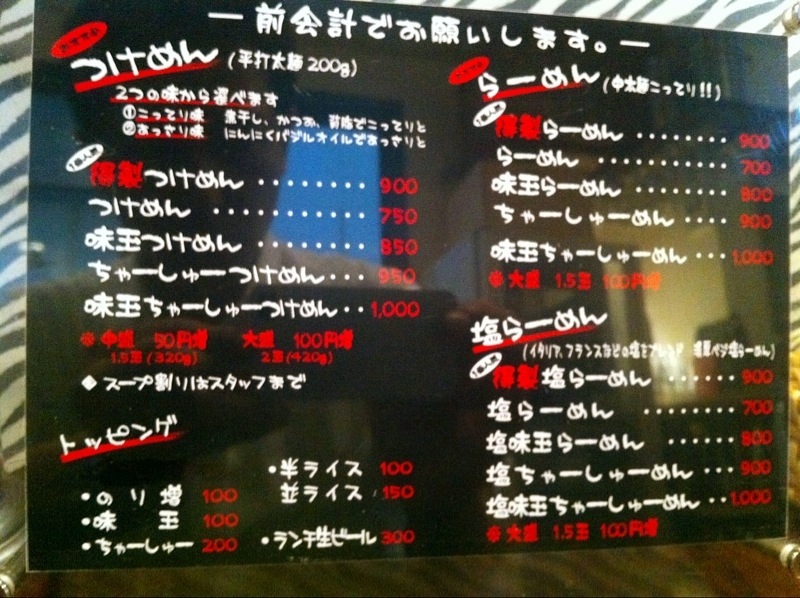 ― 前会計でお願いします。―
おすすめ
つけめん (平打太麺200g)
2つの味から選べます
①こってり味 煮干し、かつお、背脂でこってりと
②あっさり味 にんにくバジルオイルであっさりと
1番人気
つけめん ・・・・・・・・ 900
つけめん ・・・・・・・・・・・ 750
味玉つけめん ・・・・・・・・ 850
ちゃーしゅーつけめん・・・ 950
味玉ちゃーしゅーつけめん・・ 1,000
※ 中盛 50円増 大盛 100円増
1.5玉(320g) 2玉(420g)
◆ スープ割りはスタッフまで
トッピング
・のり増 100
・味玉 100
・ちゃーしゅー 200
・半ライス 100
並ライス 150
・ランチ生ビール 300
らーめん (中太麺こってり!!)
1番人気
らーめん ・・・・・・・・ 900
らーめん ・・・・・・・・・・ 700
味玉らーめん ・・・・・・・ 800
ちゃーしゅーめん ・・・・ 900
味玉ちゃーしゅーめん ・・1,000
※ 大盛 1.5玉 100円増
塩らーめん
(イタリア、フランスなどの塩をブレンド 塩らーめん)
1番人気
塩らーめん ・・・・・・ 900
塩らーめん ・・・・・・・・ 700
塩味玉らーめん ・・・・・・ 800
塩ちゃーしゅーめん ・・・ 900
塩味玉ちゃーしゅーめん ・・1,000
※ 大盛 1.5玉 100円増